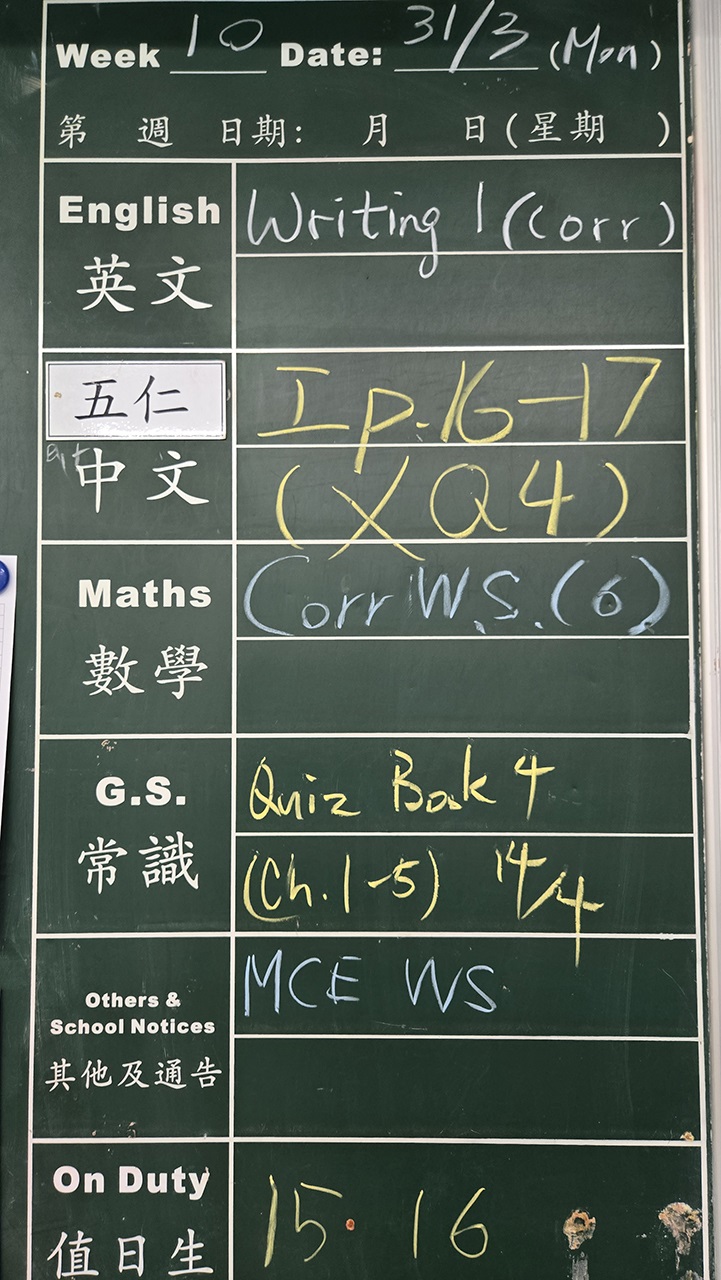 Week 10 Date: 31/3 (Mon)
第 週 日期: 月 日(星期 )
English Writing 1 (Corr)
英文
五仁 I p.16-17
中文 (X Q4)
Maths Corr W.S. (6)
數學
G.S. Quiz Book 4
常識 (Ch. 1-5) 14/4
Others & MCE WS
School Notices
其他及通告
On Duty 15. 16
值日生